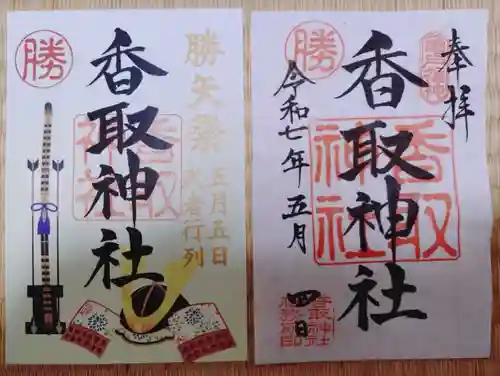 勝
香取神社
勝矢祭
五月五日
武者行列
香取
神社
奉拝
勝
香取神社
令和七年五月四日
香取
神社
香取神社